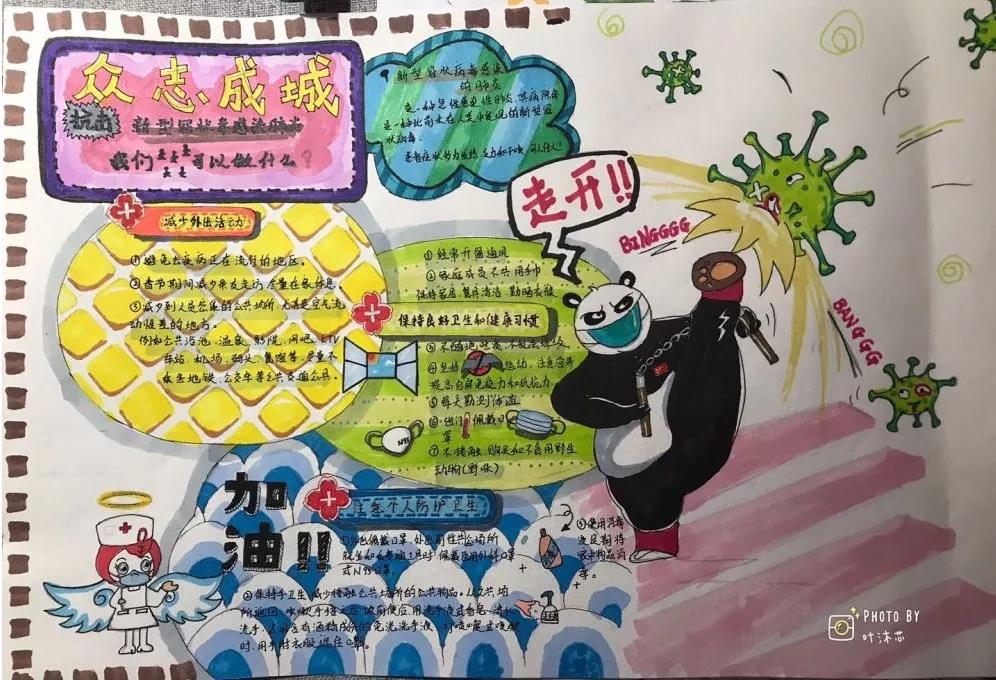 众志成城
抗击 新型冠状病毒感染肺炎
我们 可以做什么?
新型冠状病毒感染
的肺炎
是一种急性感染性肺炎,其病原体
是一种此前未在人类中发现的新型冠
状病毒。
走开!!
BINGGGG
BANGGG
减少外出活动
①避免去疫病正在流行的地区。
②春节期间减少亲友走访,尽量在家休息
③减少到人员密集的公共场所,尤其是空气流
动性差的地方。
例如公共浴池、温泉、影院、网吧、KTV
车站、机场、码头、
地铁、公交车等公共交通工具。
①经常开窗通风
②家庭成员不共用毛巾
保持家居、餐具清洁 勤晒衣被
保持良好卫生和健康习惯
③不随地吐痰
④坚持 运动,注意营养
提高自身免疫力和抵抗力
⑤每天勤测体温
⑥出门 佩戴口
罩
⑦不接触、购买和不食用野生
动物(野味)
N95
加
油!!
注意个人防护卫生
①外出佩戴口罩,外出前往公共场所
就医和公共交通工具时,佩戴医用外科口罩
或N95口罩。
②保持手卫生,减少接触公共场所的公共物品。从公共场
所返回、咳嗽手捂之后、饭前便后,用洗手液或香皂,流水
洗手,
时,用手肘衣服遮住口鼻。
③使用消毒
PHOTO BY
叶沐芯